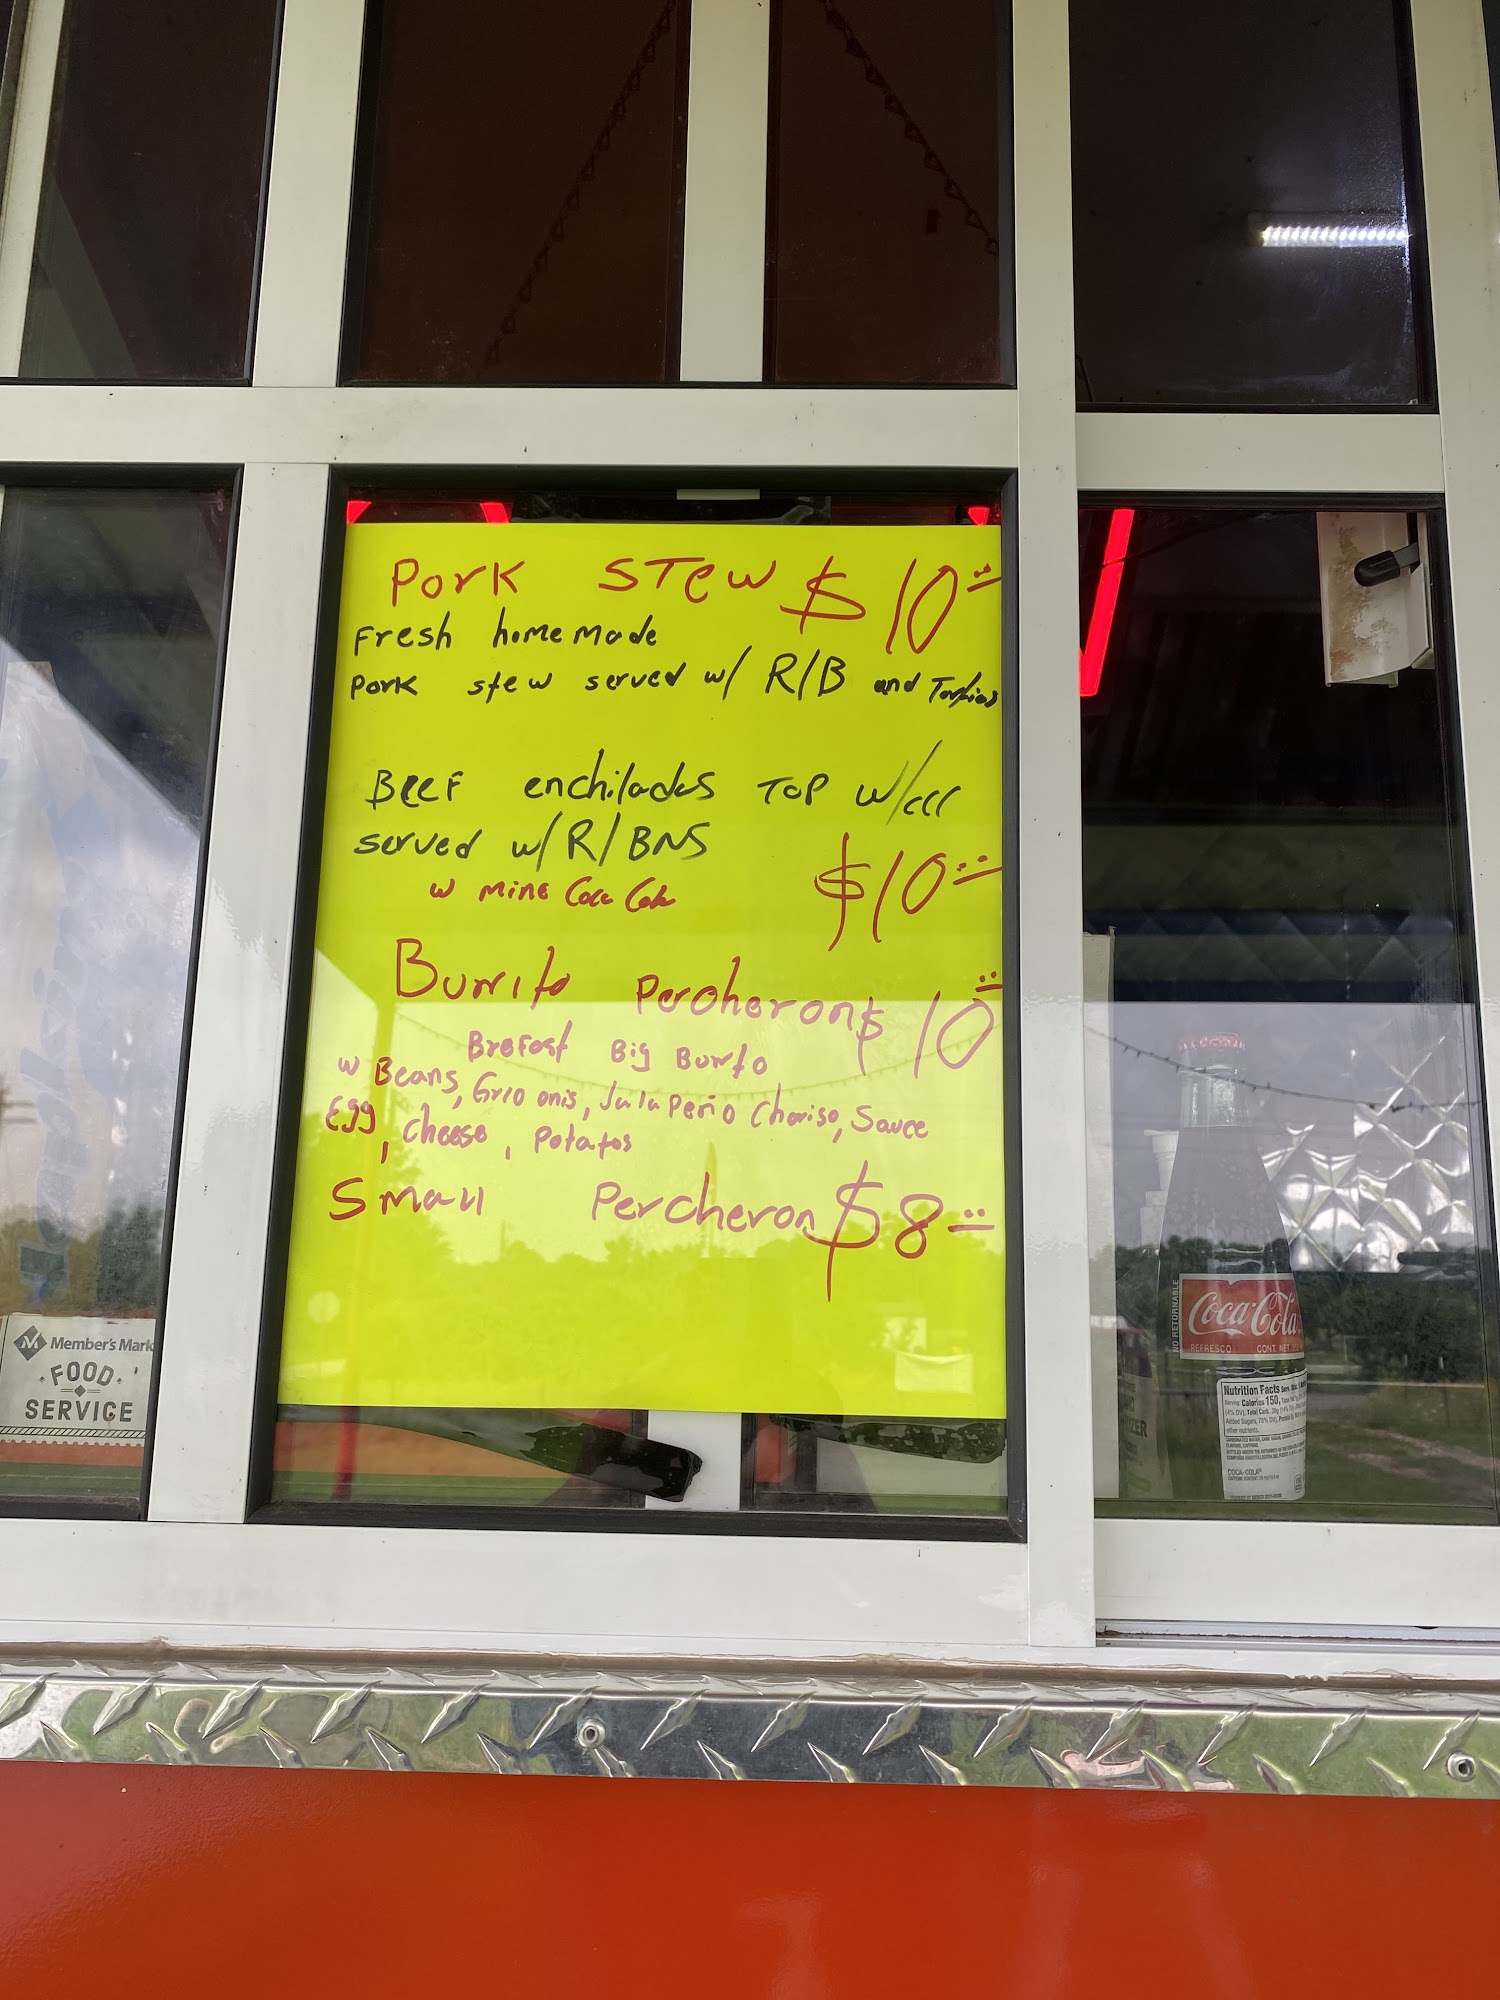 Pork STew $10
Fresh homemade
Pork stew served w/ R/B and Tortias
BEEF enchiladas TOP w/ccc
served w/R/BNS
w mine Coca Cola $10
Burrito Percheron $10
BreFast Big Burrito
w Beans, Grio onis, Jalapeño Choriso, Sauce
Egg, cheese, Potatos
Small Percheron $8
Member's Mark
FOOD
SERVICE
NO RETORNABLE
Coca-Cola
REFRESCO CONT. NET.
Nutrition Facts
Calories 150,
COCA-COLA